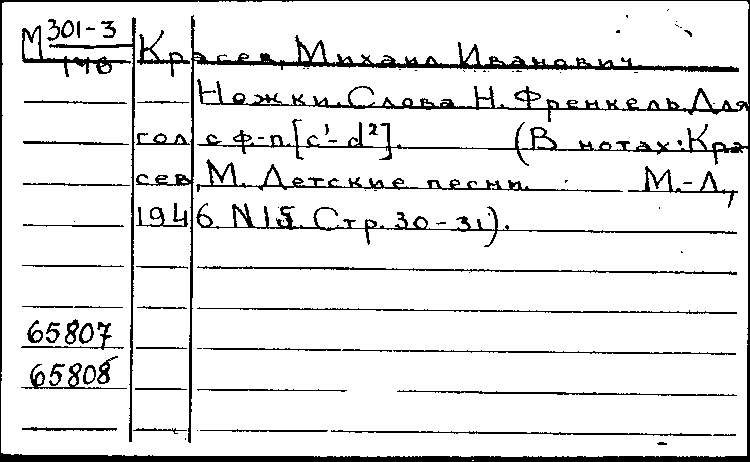 М 301-3 Красев, Михаил Иванович
146
Ножки. Слова Н. Френкель. Для
гол. с ф-п. [c¹-d²]. (В нотах: Кра-
сев, М. Детские песни. М.-Л.,
1946. N 15. Стр. 30-31).
65807
65808